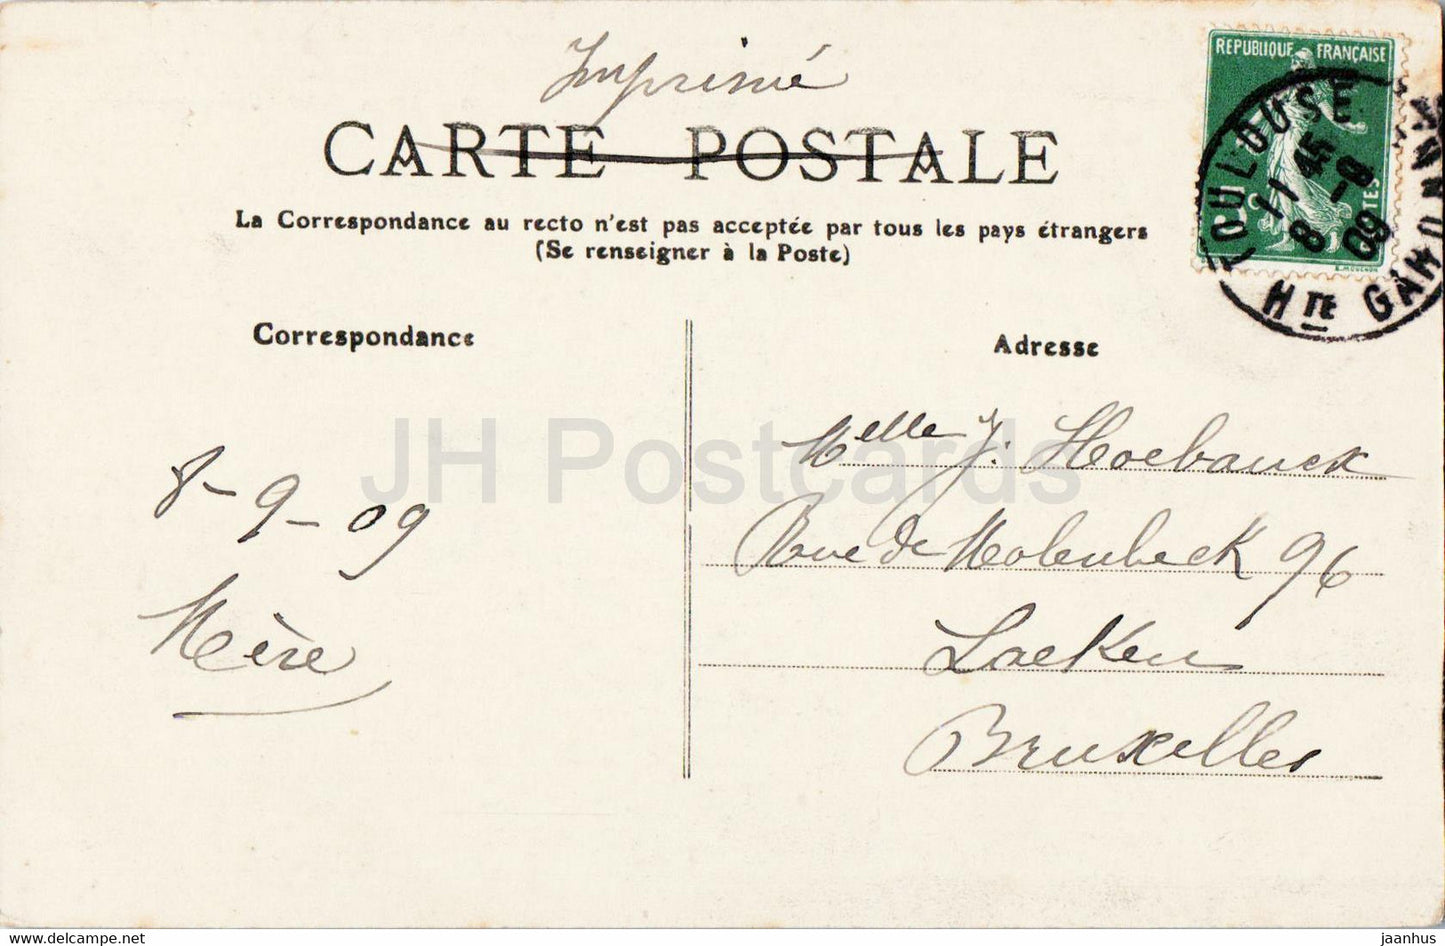 Imprimé
CARTE POSTALE
La Correspondance au recto n'est pas acceptée par tous les pays étrangers
(Se renseigner à la Poste)
REPUBLIQUE FRANÇAISE
TOULOUSE
11 45
8 -9
09
Hte GARONNE
Correspondance
Adresse
JH Postcards
8-9-09
Mère
Melle J. Hoebanck
Rue de Molenbeck 96
Laeken
Bruxelles
jaanhus